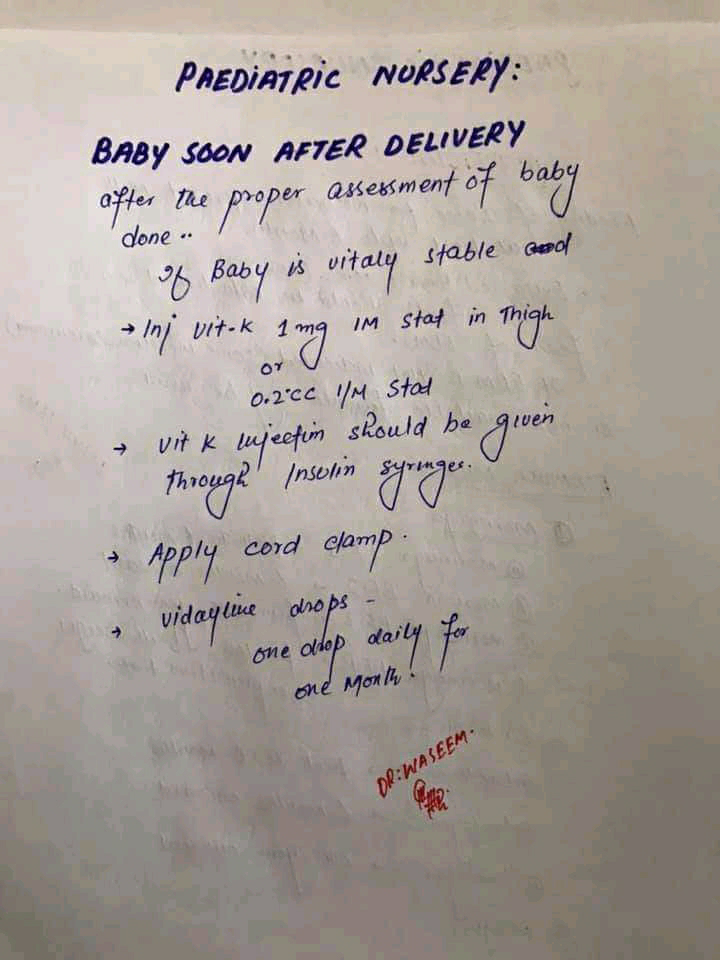 PAEDIATRIC NURSERY:
BABY SOON AFTER DELIVERY
after the proper assessment of baby
done..
If Baby is vitaly stable and
→ Inj vit-K 1mg IM stat in Thigh
or
0.2cc I/M Stat
→ vit K Injection should be given
through Insulin syringes.
→ Apply cord clamp.
→ vidayline drops -
one drop daily for
one Month!
DR: WASEEM.